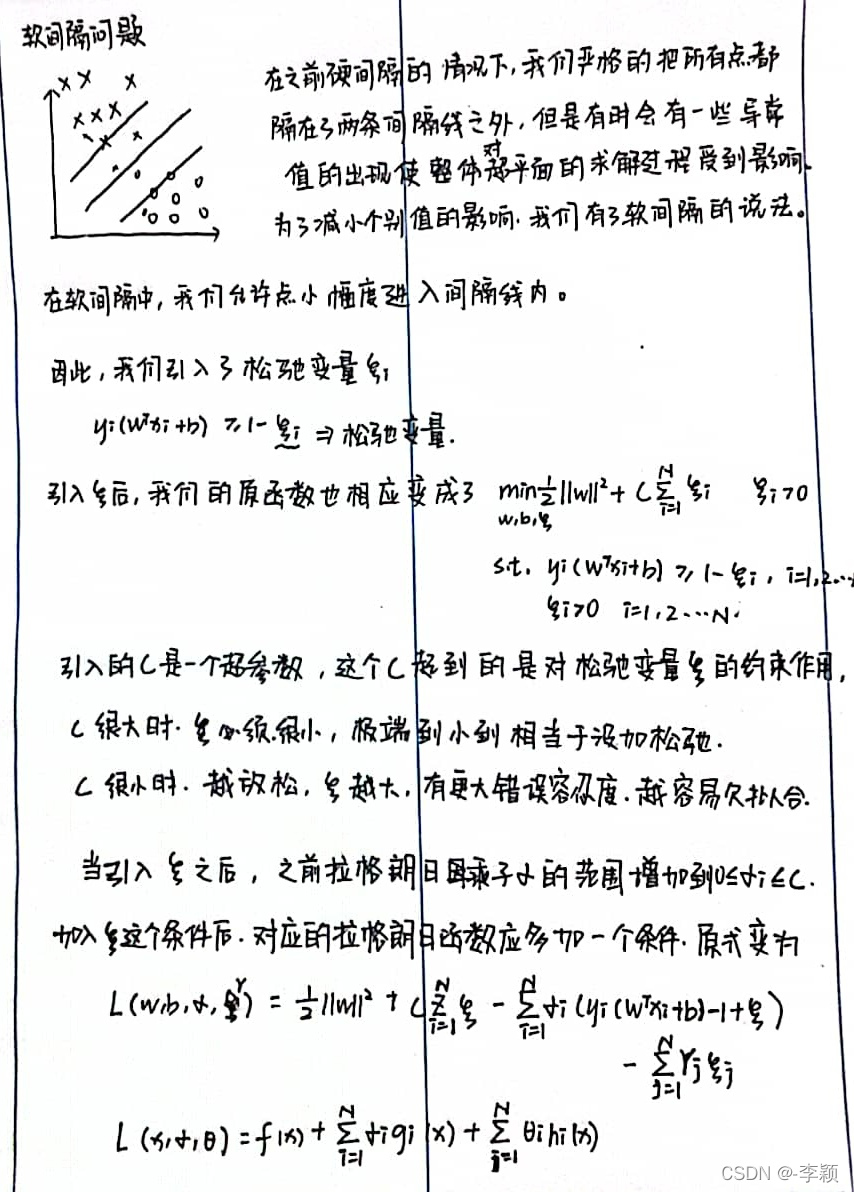 软间隔问题
在之前硬间隔的情况下,我们严格的把所有点都
隔在了两条间隔线之外,但是有时会有一些异常
值的出现使整体对超平面的求解过程受到影响.
为了减小个别值的影响.我们有了软间隔的说法。
在软间隔中,我们允许点小幅度进入间隔线内。
因此,我们引入了松驰变量ξi
yi(wᵀxi+b) ≥ 1-ξi ⇒ 松驰变量.
引入ξ后,我们的原函数也相应变成了 min 1/2||w||² + C∑ξi ξi>0
w,b,ξ i=1 N
s.t. yi(wᵀxi+b) ≥ 1-ξi, i=1,2...
ξi>0 i=1,2...N.
引入的C是一个超参数,这个C起到的是对松驰变量ξ的约束作用,
C很大时.ξ必须很小,极端到小到相当于没加松驰.
C很小时.越放松,ξ越大,有更大错误容忍度.越容易欠拟合.
当引入ξ之后,之前拉格朗日乘子α的范围增加到0≤αi≤C.
加入ξ这个条件后.对应的拉格朗日函数应多加一个条件.原式变为
L(w,b,α,γ) = 1/2||w||² + C∑ᵢ₌₁ᴺ ξ - ∑ᵢ₌₁ᴺ αi(yi(wᵀxi+b)-1+ξ)
- ∑ⱼ₌₁ᴺ γjξj
L(x,α,θ) = f(x) + ∑ᵢ₌₁ᴺ αigi(x) + ∑ⱼ₌₁ᴺ θihi(x)
CSDN @-李颖